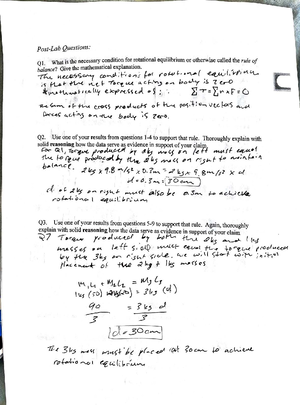 Post-Lab Questions:
Q1. What is the necessary condition for rotational equilibrium or otherwise called the rule of
balance? Give the mathematical explanation.
The necessary condition for rotational equilibrium
is that the net Torque acting on body is zero
mathematically expressed as: Στ = Σr×F = 0
sum of the cross products of the position vectors and
forces acting on the body is zero.
Q2. Use one of your results from questions 1-4 to support that rule. Thoroughly explain with
solid reasoning how the data serve as evidence in support of your claim.
For Q1, torque produced by 2kg mass on left must equal
the torque produced by the 2kg mass on right to maintain
balance. 2kg x 9.8 m/s² x 0.3m = 2kg x 9.8m/s² x d
d = 0.3m = 30cm
d of 2kg on right must also be 0.3m to achieve
rotational equilibrium
Q3. Use one of your results from questions 5-9 to support that rule. Again, thoroughly
explain with solid reasoning how the data serve as evidence in support of your claim
Q7 Torque produced by both the 2kg and 1kg
masses on left side must equal the torque produced
by the 3kg on right side. we will start with initial
placement of the 2kg + 1kg masses
= 3kg (d)
90 = 3kg d
3 3
d = 30cm
The 3kg mass must be placed at 30cm to achieve
rotational equilibrium